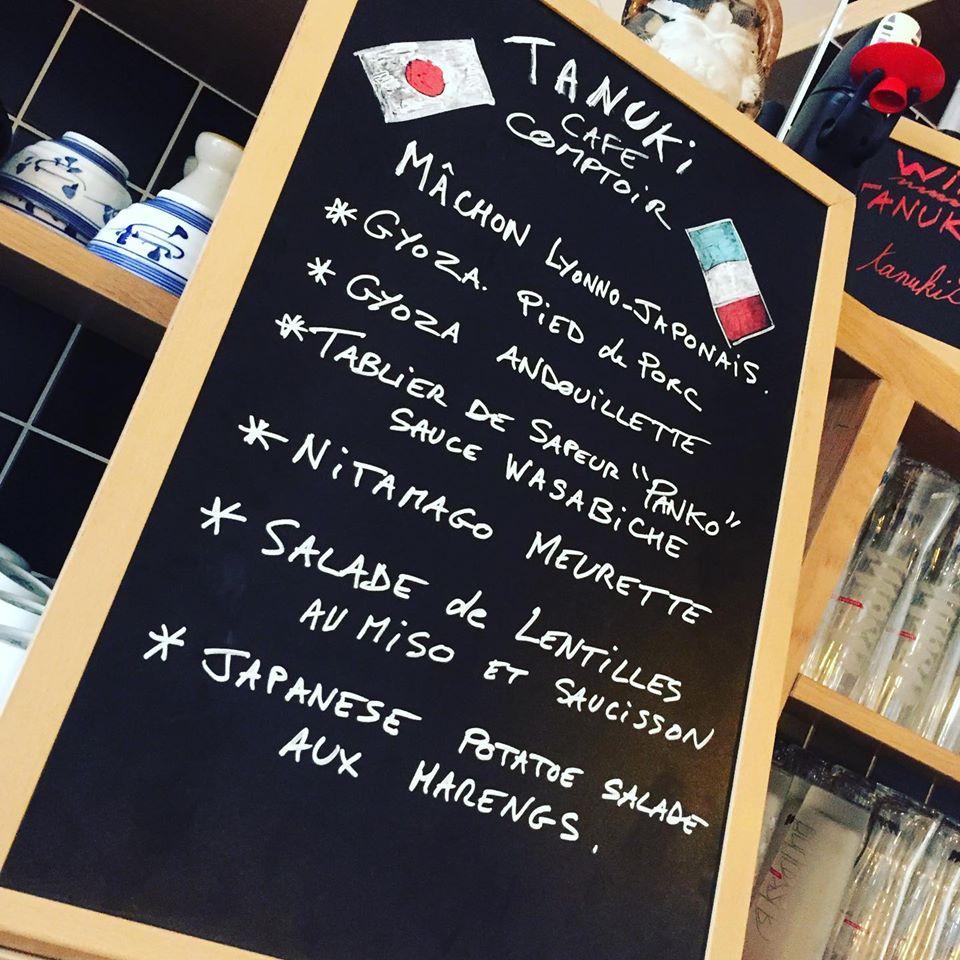 TANUKi
CAFE
COMPTOIR
MÂCHON LYONNO-JAPONAIS.
* GYOZA. PIED de PORC
* GYOZA ANDOUILLETTE
* TABLIER DE SAPEUR "PANKO"
SAUCE WASABICHE
* NiTAMAGO MEURETTE
* SALADE de LENTILLES
AU MiSO ET SAUCISSON
* JAPANESE POTATOE SALADE
AUX HARENGS.
TANUK
tanuki